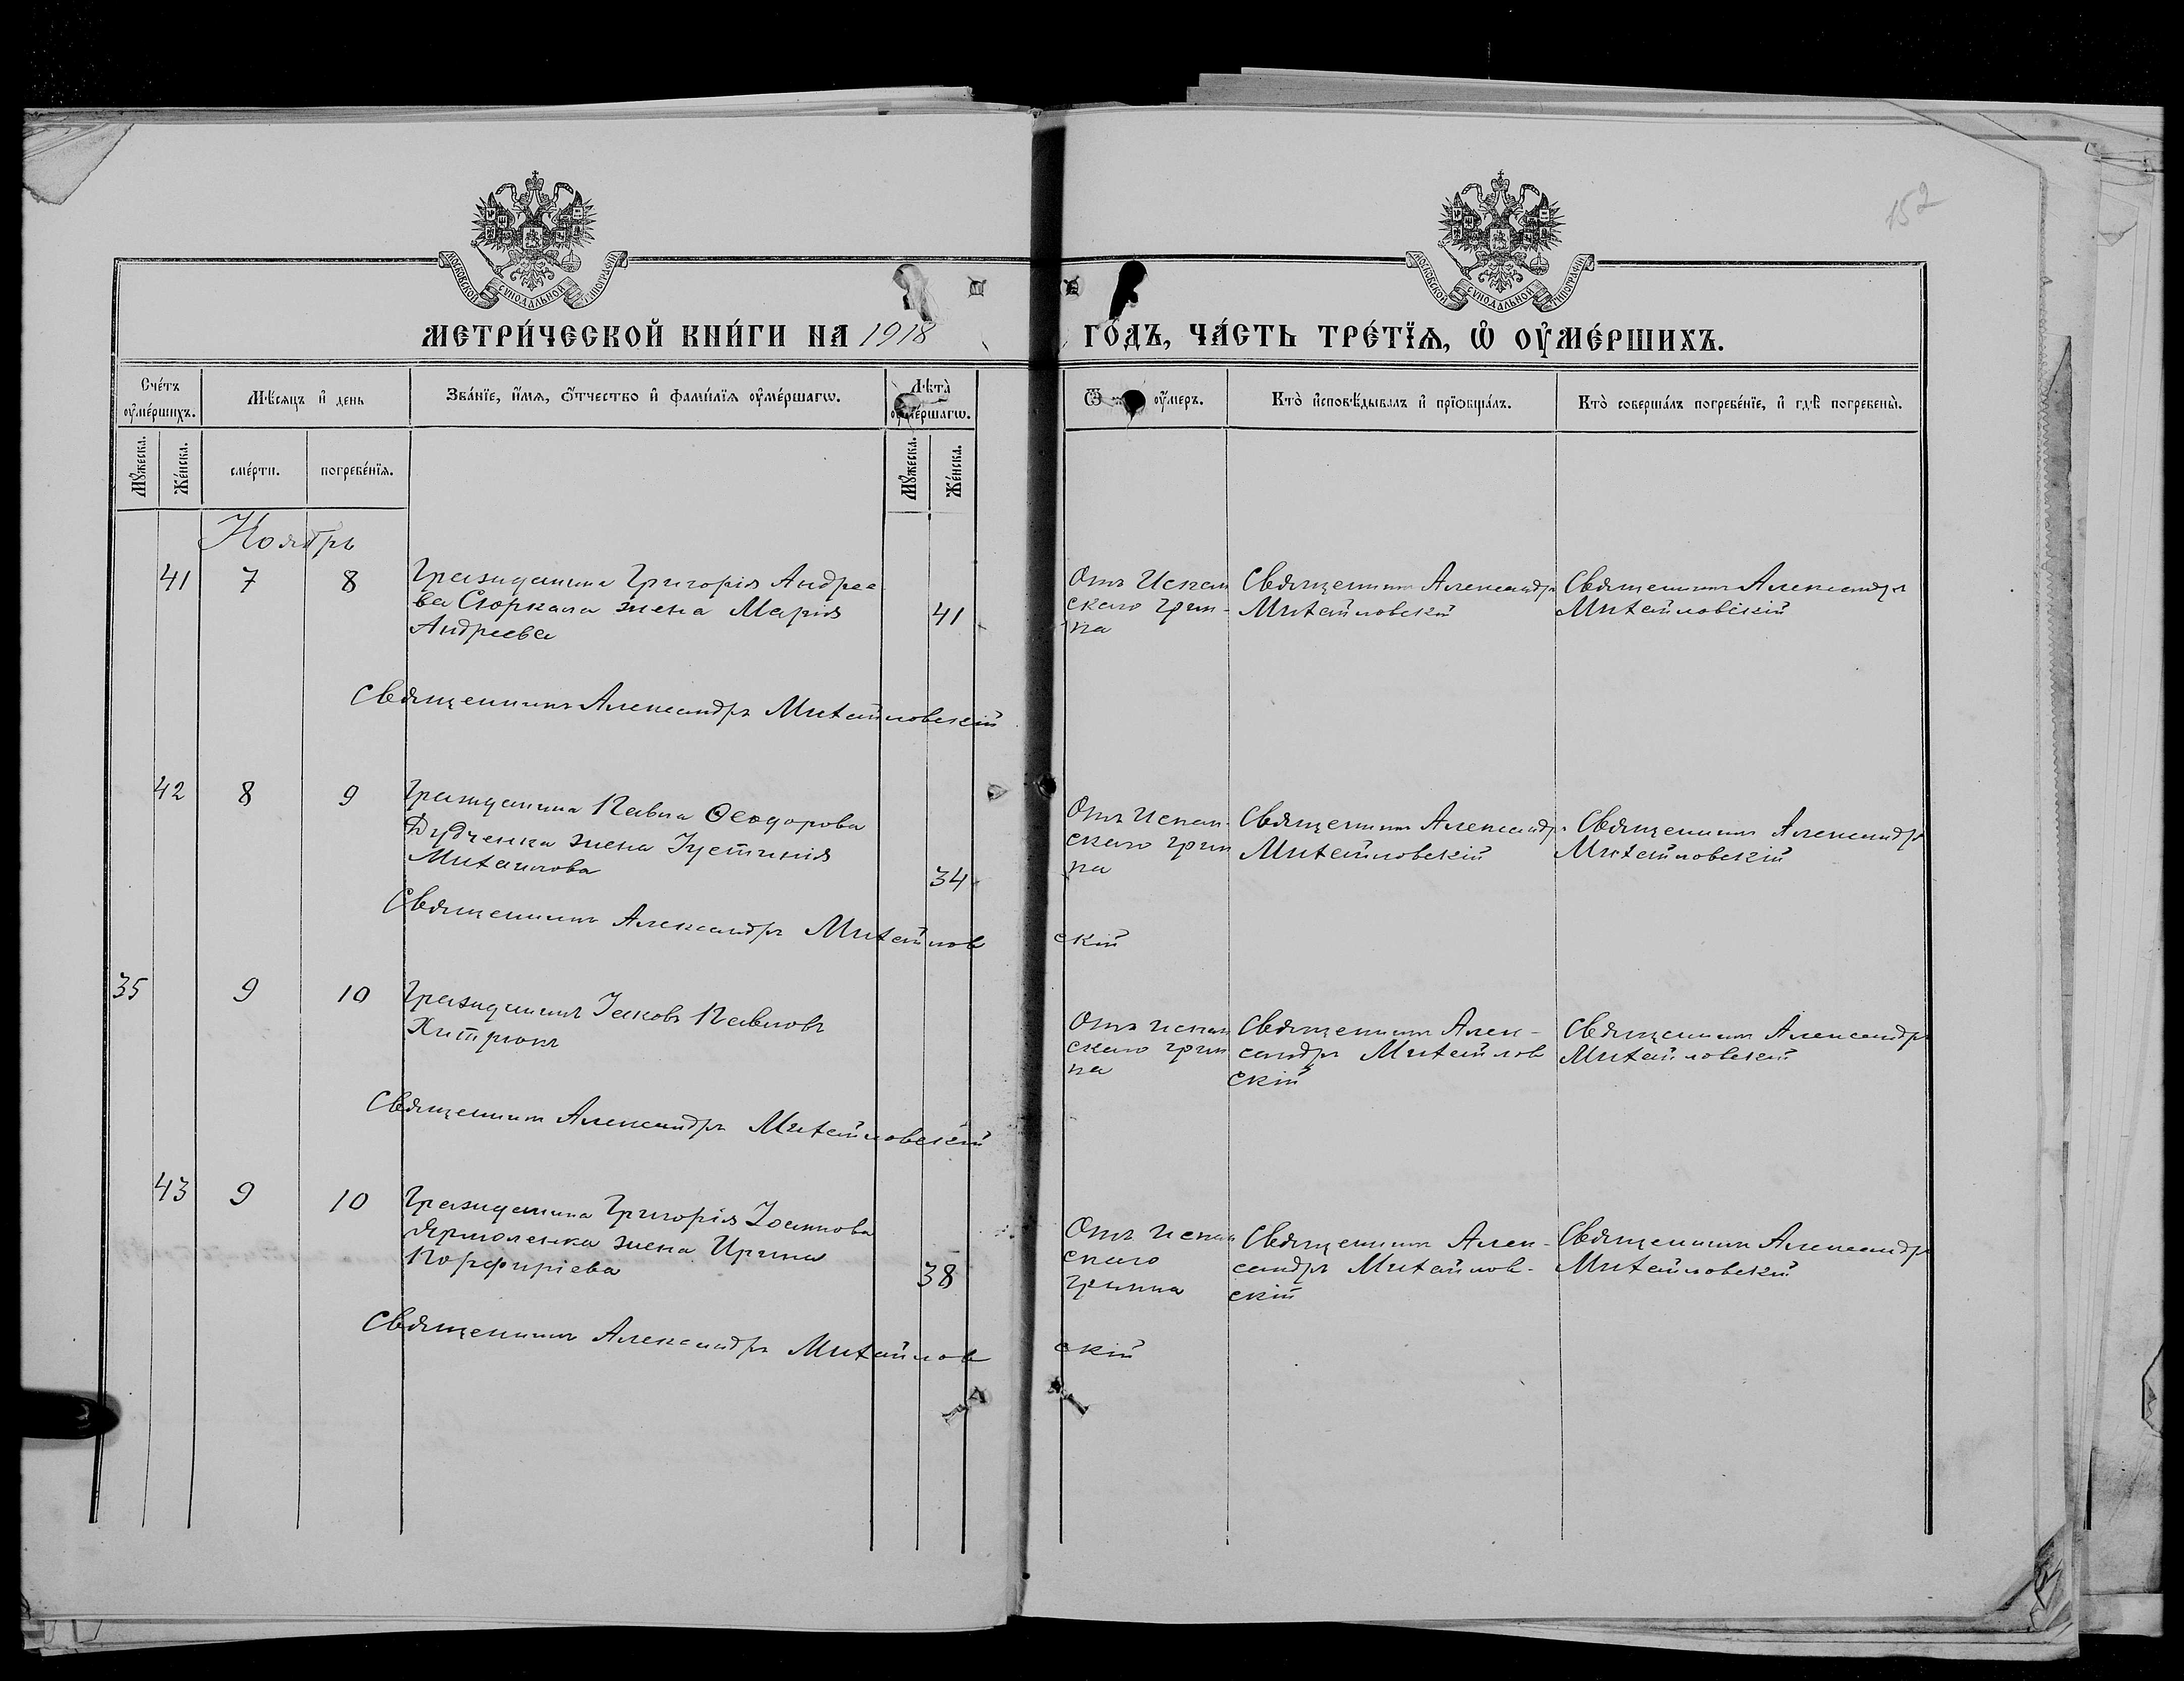 152
МОСКОВСКОЙ СѴНОДАЛЬНОЙ ТИПОГРАФІИ
МОСКОВСКОЙ СѴНОДАЛЬНОЙ ТИПОГРАФІИ
МЕТРИ́ЧЕСКОЙ КНИ́ГИ НА 1918 ГО́ДЪ, ЧА́СТЬ ТРЕ́ТЇѦ, Ѡ҆ ОУ҆МЕ́РШИХЪ.
Сче́тъ оу҆ме́ршихъ.
Мѣ́сяцъ и҆ день
Зва́нїе, и҆́мѧ, ѻ҆́тчество и҆ фами́лїѧ оу҆ме́ршагѡ.
Лѣта̀ оу҆ме́ршагѡ.
Ѿ оу҆́меръ.
Кто̀ и҆сповѣ́дывалъ и҆ прїѡбща́лъ.
Кто̀ соверша́лъ погребе́нїе, и҆ гдѣ̀ погребены̀.
Мꙋ́жеска.
Же́нска.
сме́рти.
погребе́нїѧ.
Мꙋ́жеска.
Же́нска.
Ноябрь
41 7 8 Гражданина Григорія Андрее-
ва Сюркала жена Марія
Андреева
41
Отъ Испан
скаго грип-
па
Священникъ Александръ
Михайловскій
Священникъ Александръ
Михайловскій
Священникъ Александръ Михайловскій
42 8 9 Гражданина Павла Ѳеодорова
Дудченка жена Іустинія
Михайлова
34
Отъ Испан-
скаго грип
па
Священникъ Александръ
Михайловскій
Священникъ Александръ
Михайловскій
Священникъ Александръ Михайлов скій
35 9 10 Гражданинъ Іаковъ Павловъ
Хитрюкъ
Отъ испан
скаго грип
па
Священникъ Алек-
сандръ Михайлов
скій
Священникъ Александръ
Михайловскій
Священникъ Александръ Михайловскій
43 9 10 Гражданина Григорія Іоаннова
Ярмоленка жена Ирина
Порфиріева
38
Отъ испан
скаго
гриппа
Священникъ Алек-
сандръ Михайлов-
скій
Священникъ Александръ
Михайловскій
Священникъ Александръ Михайлов скій